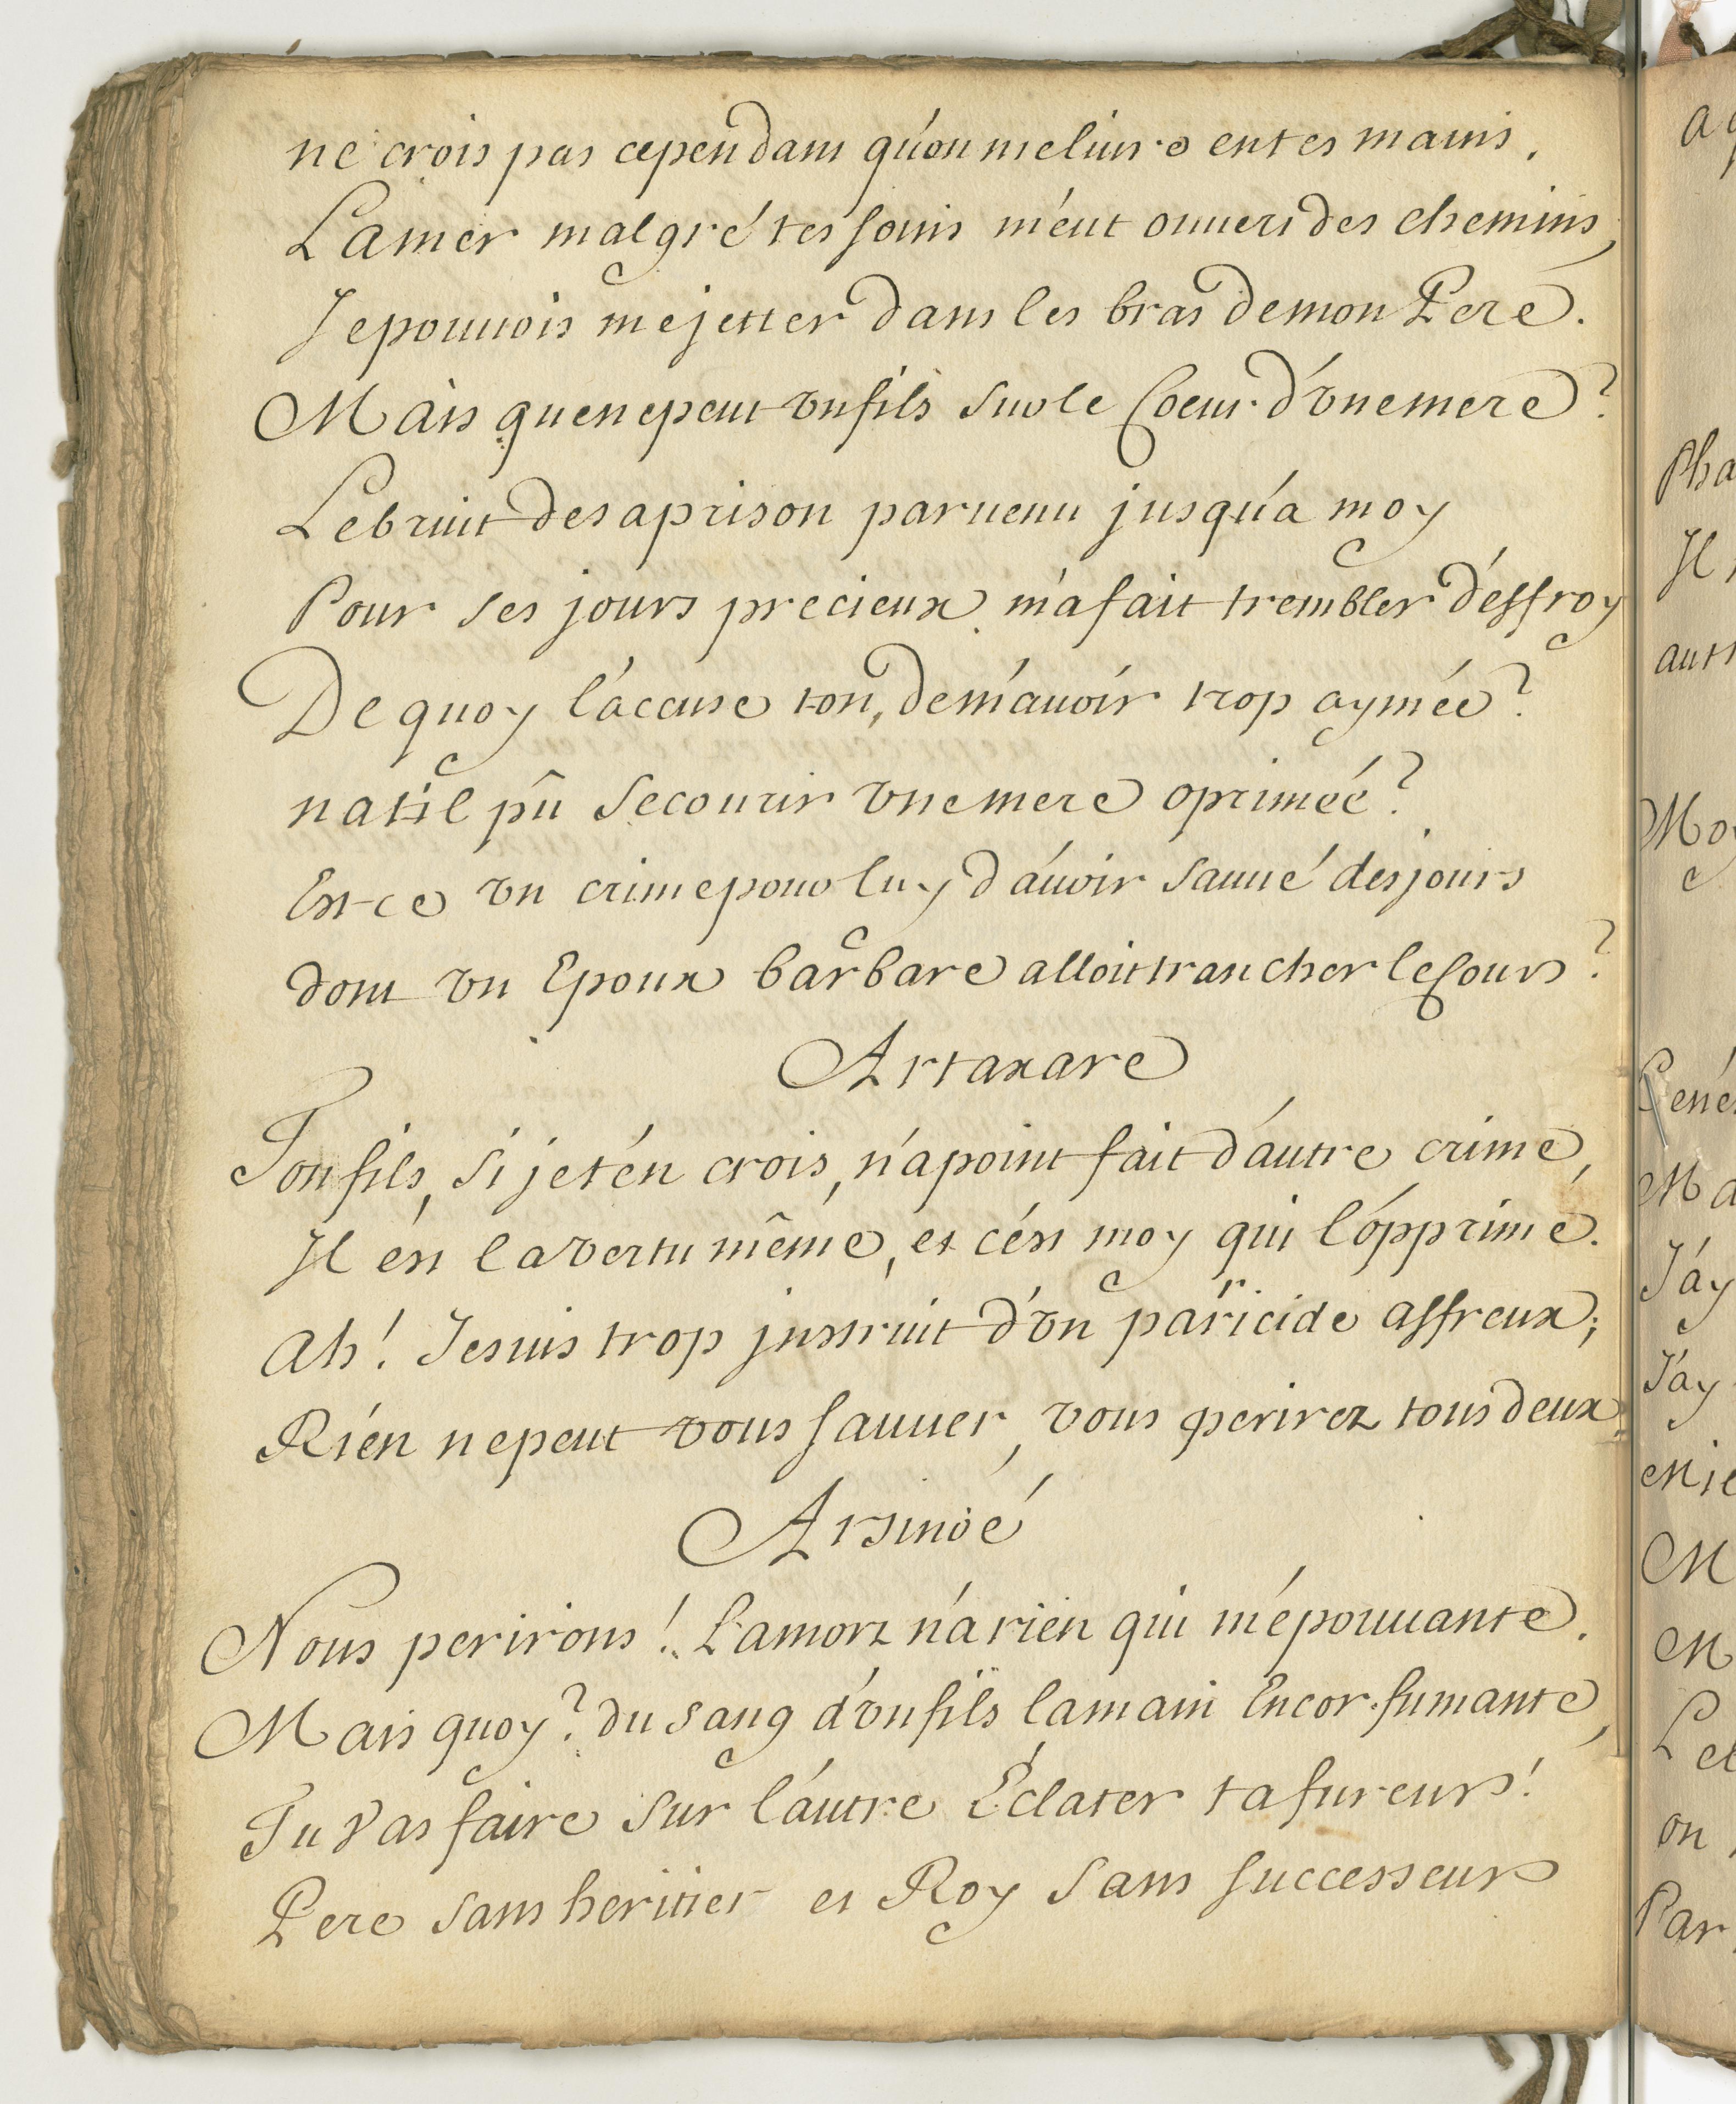 ne crois pas cependant qu'on me livre en tes mains.
La mer malgré tes soins m'eut ouuert des chemins,
Je pouuois me jetter dans les bras de mon Pere.
Mais que ne peut vn fils sur le Coeur d'vne mere?
Le bruit de sa prison paruenu jusqu'a moy
Pour ses jours precieux m'a fait trembler d'effroy
De quoy l'accuse ton, de m'auoir trop aymée?
na t-il pû secourir vne mere oprimée?
Est-ce vn crime pour luy d'auoir sauué des jours
dont vn Epoux barbare alloit trancher le Cours?
Artaxare
Ton fils, si je t'en crois, n'a point fait d'autre crime,
Il est la vertu même, et c'est moy qui l'opprime.
Ah! Je suis trop jnstruit d'vn parricide affreux;
Rien ne peut vous sauuer, vous perirez tous deux.
Arsinoé
Nous perirons! La mort n'a rien qui m'épouuante.
Mais quoy? du sang d'vn fils la main Encor fumante,
Tu Vas faire sur l'autre Éclater ta fureur!
Pere sans heritier et Roy sans successeur
a
Pha
Il
aut
Moy
Ma
J'ay
J'ay
M
M
on
Par